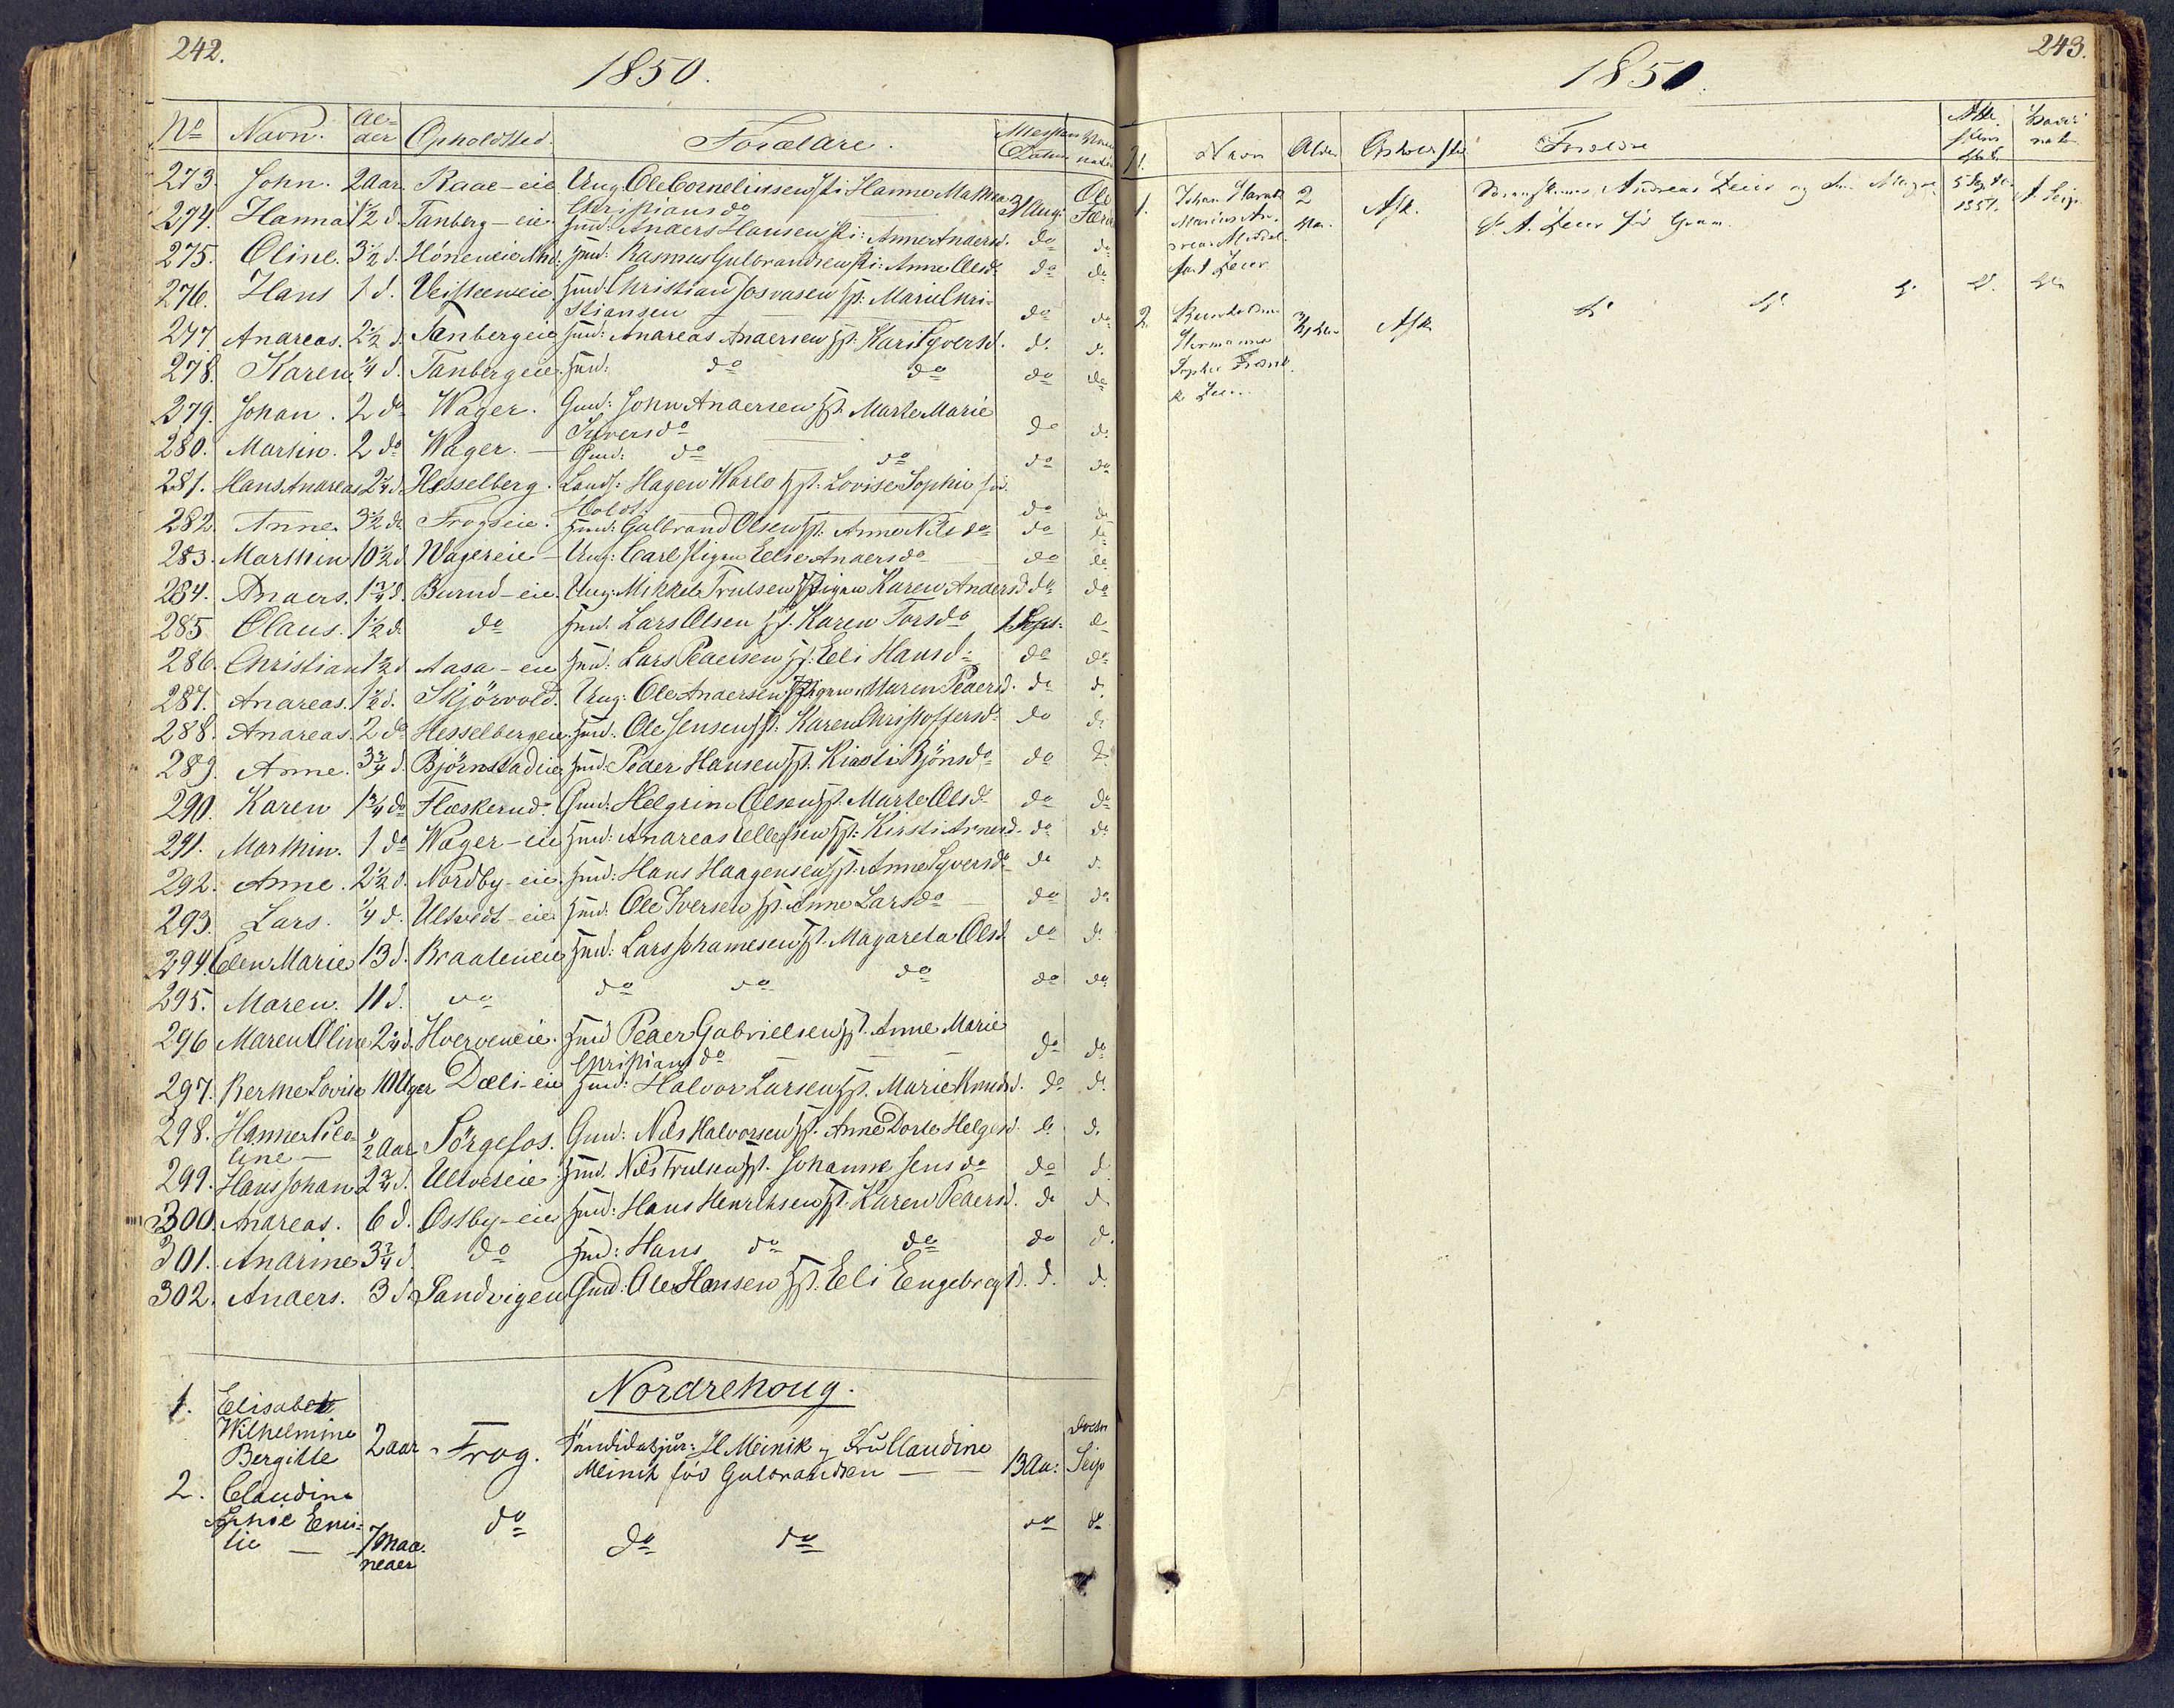 242.
1850.
No Navn. Al=der Opholdsted. Forældre. Attestens Datum Vaccinator
273. John. 2 Aar. Raae-eie Ung: Ole Corneliussen p: Hanne Mathea Christiansdo 31 Aug: Ole
274. Hanna 1½ d. Tanberg-eie Hmd: Anders Hansen p: Anne Andersd. do do
275. Oline. 3½ d. Hønen eie Hmd: Rasmus Gulbrandsen p: Anne Olsd. do do
276. Hans 1 d. Veisteneie Hmd: Christian Josvasen p: Marie Christiansen do do
277 Andreas. 2½ d. Tanbergeie Hmd: Andreas Andersen p: Kari Syversd. do d.
278. Karen ¼ d. Tanbergeie. Hmd: do do do do
279. Johan. 2 do Wager. Gmd: John Andersen p: Marte Marie Syversdo do do
280. Martin. 2 do Wager. — Gmd: do do do do
281. Hans Andreas 2¼ d. Hesselberg. Landh: Hagen Warlo p: Lovise Sophie fød Holdt. do do
282. Anne. 3½ do Frogseie. Hmd: Gulbrand Olsen p: Anne Nilsdo do do
283. Marthin 10½ d. Wagereie — Ung: Carl pigen Eelse Andersdo do do
284. Anders. 1¾ d. Burud-eie. Ung: Mikkel Trulsen pigen Karen Andersd. do do
285 Olaus. 1½ d. do Hmd: Lars Olsen p: Karen Torsdo 1 Sept: do
286. Christian 1½ d Aasa-eie Hmd: Lars Pedersen p: Eeli Hansd: do do
287. Andreas. 1½ d. Skjørvold. Ung: Ole Andersen pigen Maren Pedersd. do d.
288. Andreas. 2 do Hesselbergeie. Hmd: Ole Jensen p: Karen Christoffersd. do do
289. Anne. 3¾ d. Bjørnstadeie Hmd: Peder Hansen p: Kirsti Bjønsdo do do
290. Karen 1¾ do Flaskerud. Gmd: Helgrim Olsen p: Marte Olsd. do do
291. Marthin. 1 do Wager-eie Hmd: Andreas Ellefsen p: Kirsti Arnesd. do do
292. Anne. 2½ d. Nordby-eie. Hmd: Hans Haagensen p: Anne Syversdo do d.
293. Lars. ¼ d. Ultvedt-eie Hmd: Ole Iversen p: Anne Larsdo do do
294. Elen Marie 13 d. Braateneie Hmd: Lars Johannesen p: Magareta Olsd. do d.
295. Maren. 11 d. do do do do do do
296 Maren Oline 2¼ d. Hverveneie. Hmd Peder Gabrielsen p: Anne Marie Christiansdo do do
297. Berthe Lovise 10 Uger Dæli-eie Hmd: Halvor Larsen p: Marie Knudsd. do d.
298. Hanne Nicoline — ½ Aar Sørgefos. Gmd: Nils Halvorsen p: Anne Dorte Helgesd. d. d.
299. Hans Johan 2¾ d. Ultveteie Hmd. Nils Trulsen p: Johanne Jensdo do d.
300. Andreas. 6 d. Ossby-eie Hmd: Hans Henriksen p: Karen Pedersd. do d.
301. Andrine 3¾ d. do Hmd: Hans do do do d.
302. Anders. 3 d. Sandvigen Gmd: Ole Hansen p: Eeli Eengebregtsd. d. d.
Nordrehoug.
1. Elisabet
Wilhelmine
Bergitte 2 aar Frog. Kandidatjur: H Meinik og Fru Claudine
Meinik fød Gulbrandsen — 13 Au: Seip
2. Claudine
Sophie Emi=
lie — 7 Maa
neder do do do do do
243.
1850.
N. Navn Alder Opholdsted Forældre
1. Johan 2 Aar. Ask. Andreas Zeier og 5 Sep 1851. A. Seip
2. Ask. do do do do do